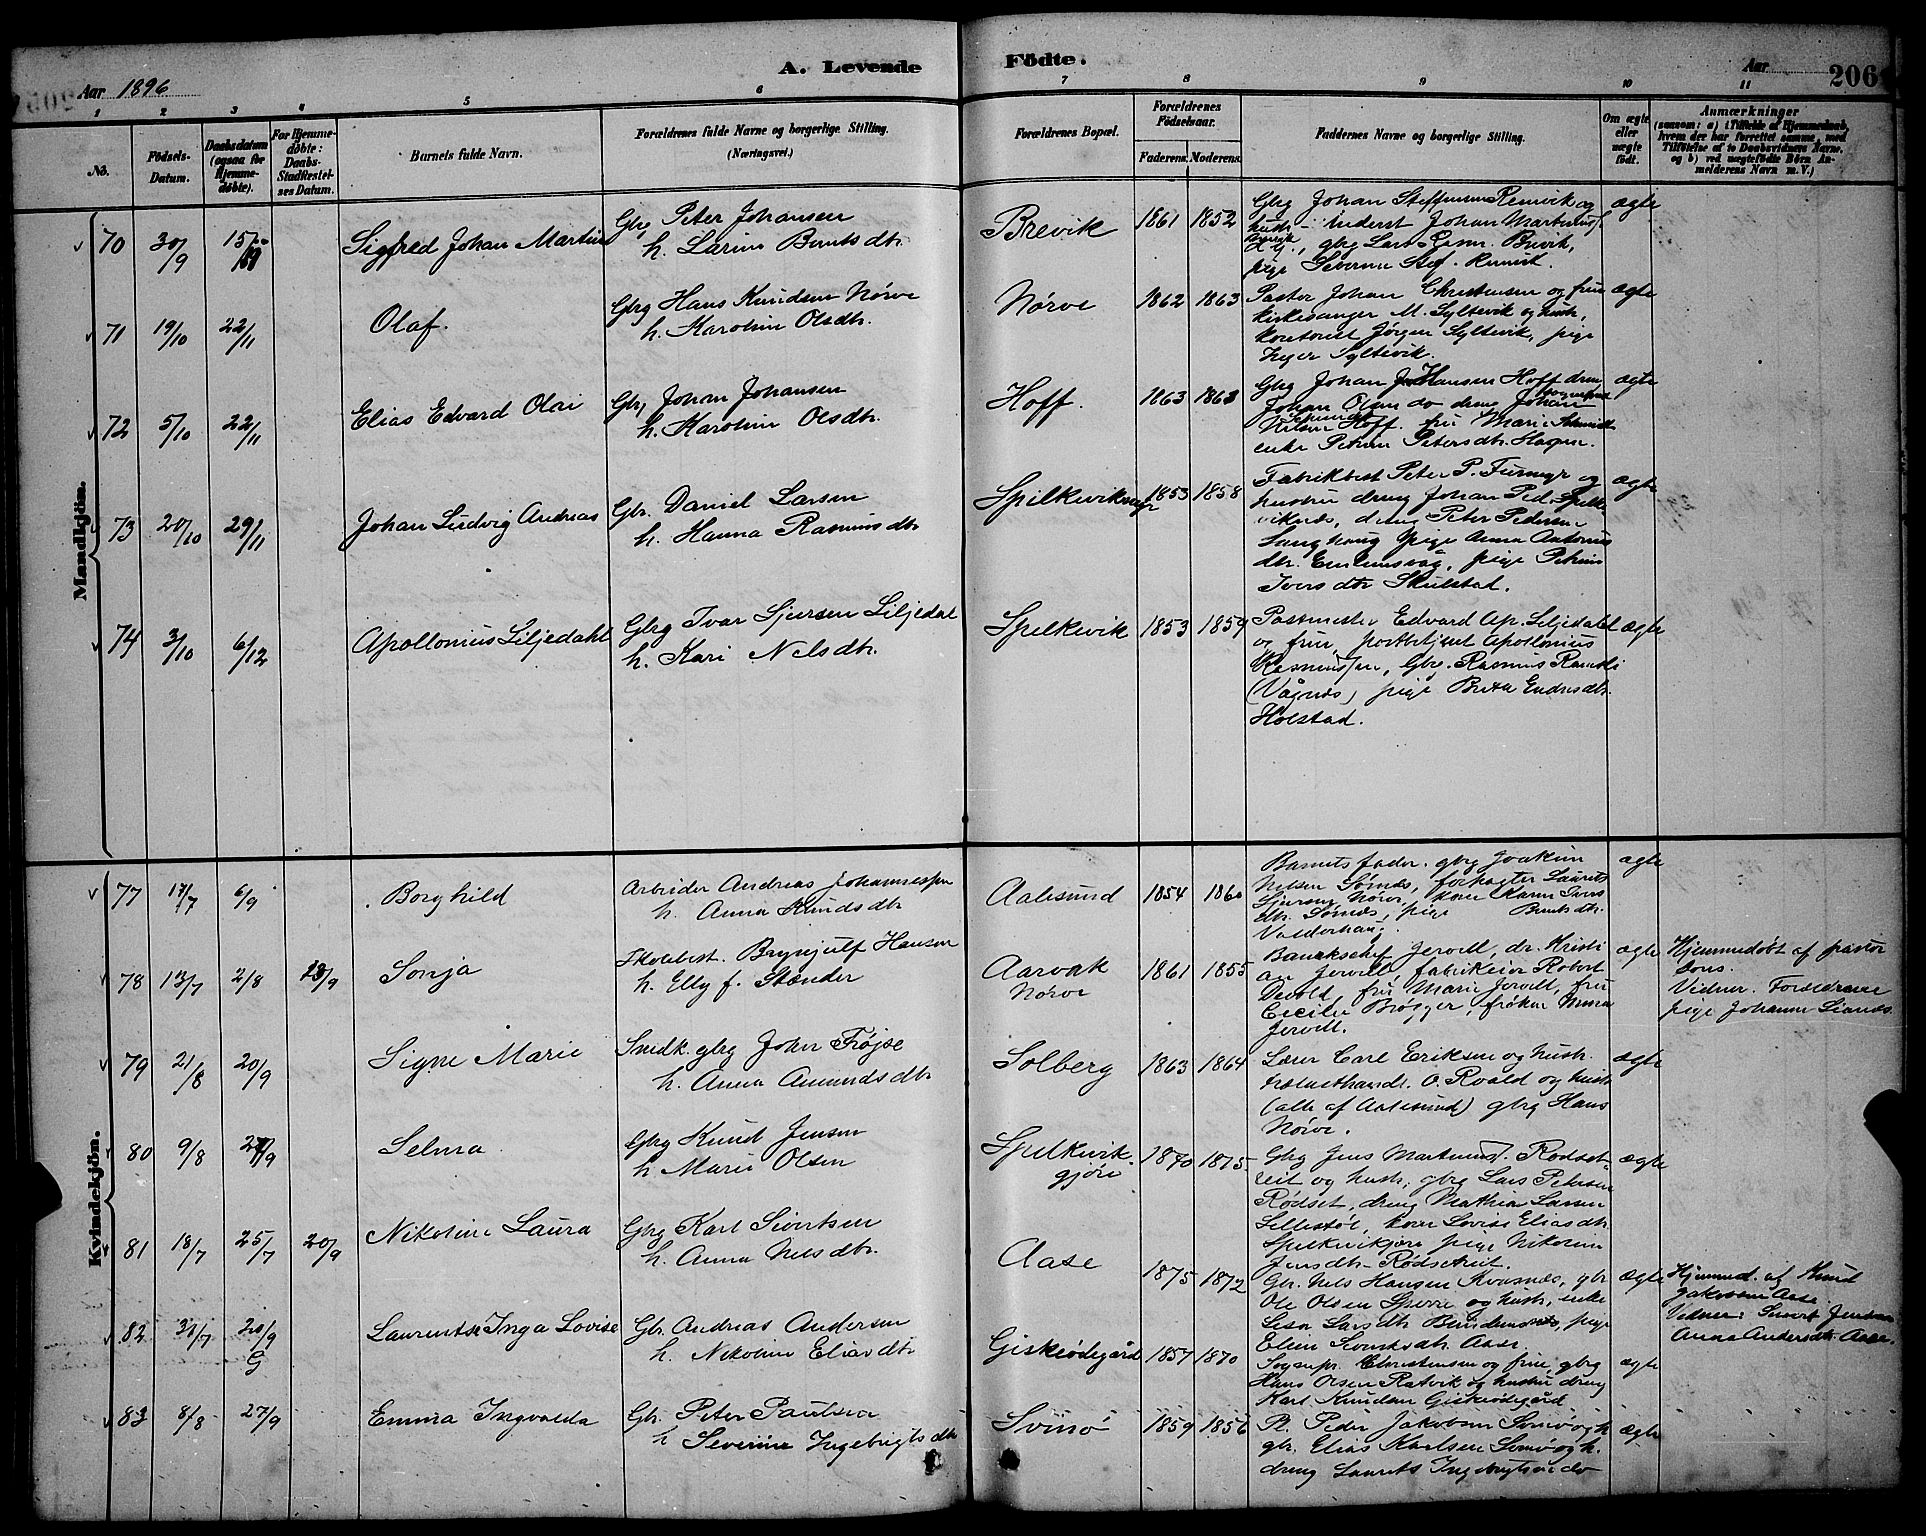 Aar 1896
A. Levende
Födte.
Aar
206
1 2 3 4 5 6 7 8 9 10 11
No.
Födsels-Datum.
Daabsdatum (ogsaa for Hjemmedøbte).
For Hjemmedøbte: Daabs-Stadfæstelses Datum.
Barnets fulde Navn.
Forældrenes fulde Navne og borgerlige Stilling.
(Næringsvei.)
Forældrenes Bopæl.
Forældrenes Födselsaar.
Faderens. Moderens.
Faddernes Navne og borgerlige Stilling.
Om ægte eller uægte födt.
Anmærkninger
(saasom: a) i Tilfælde af Hjemmedaab, hvem der har forrettet samme, med Tilföielse af to Daabsvidners Navne, og b) ved uægtefödte Börn Anmelderens Navn m. V.)
Mandkjön.
70 30/9 15/11 Sigfred Johan Martin
Gbrg Peter Johansen
h. Larine Berntsdtr.
Brevik 1861 1852
Gbrg Johan Steffensen Remvik og
hustr. Inderst Johan Martinus
gbrg Lars Rasm. Brevik,
pige Severine Stef. Remvik.
ægte
71 19/10 22/11 Olaf.
Gbrg Hans Knudsen Nørve
h. Karoline Olsdtr.
Nørve 1862 1863
Pastor Johan Christensen og frue
kirkesanger M. Syltevik og hustr,
Jørgen Syltevik, pige
Inger Syltevik.
ægte
72 5/10 22/11 Elias Edvard Olai
Gbrg Johan Johansen
h. Karoline Olsdtr.
Hoff. 1863 1863
Gbrg Johan Johansen Hoff dreng
Johan Olsen do dreng Johan
Nilsen Hoff. fru Marie Schmidt
enke Petrine Petersdtr. Hagen.
ægte
73 20/10 29/11 Johan Ludvig Andreas
Gbr. Daniel Larsen
h. Hanna Rasmusdtr.
Spilkeviknes 1853 1858
Fabrikbest Peter P. Furmyr og
hustru dreng Johan Ped. Spilkeviknæs, dreng Peter Pedersen
Langhaug pige Anna Antonius
dtr. Emlemsvåg, pige Petrine
Iversdtr Skulstad.
ægte
74 3/10 6/12 Apollonius Liljedahl
Gbrg Ivar Sjursen Liljedal
h. Kari Nelsdtr.
Spelkevik 1853 1859
Postmester Edvard Ap. Liljedahl
og frue, postbetjent Apollonius
Rasmussen, Gbr. Rasmus
(Vågnæs) pige Brita Endresdtr.
Holstad.
ægte
Kvindekjön.
77 17/7 6/9 Borghild
Arbeider Andreas Johannessen
h. Anna Knudsdtr
Aalesund 1854 1860
Barnets fader. gbrg Joakim
Nelsen Sørnæs, forhagter Laurits
Nørve, kone Karen Ivers
dtr. Sørnæs, pige Berntsdtr.
Valderhaug
ægte
78 13/7 2/8 13/9 Sonja
Skolebest. Brynjulf Hansen
h. Elly f. Stender
Aarvak
Nørve
1861 1855
Bankchef Jervell, dr. Kristian Jervell, fabrikeier Robert
Devold, fru Marie Jervell, fru
Cecilie Brøgger, frøken
Jervell.
ægte
Hjemmedøbt af pastor
Sons.
Vidner: Forældrene
pige Johanne
79 21/8 20/9 Signe Marie
Snedk. gbrg John Frøjse
h. Anna Amundsdtr
Solberg 1863 1864
Lærer Carl Eriksen og hustr.
O. Roald og hustr
(alle af Aalesund) gbrg Hans
Nørve.
ægte
80 9/8 27/9 Selma
Gbrg Knud Jensen
h. Marie Olsen
Spelkevik-
gjøre
1870 1875
Gbrg Jens Martinus. Rødsetreit og hustr, gbrg Lars Petersen
Rødset, dreng Mathias Larsen
Lillestøl, kone Lovise Eliasdtr.
Spelkevikgjøre pige Nikoline
Jensdtr. Rødsetreit.
ægte
81 18/7 25/7 20/9 Nikoline Laura
Gbrg Karl Sivertsen
h. Anna Nelsdtr.
Aase 1875 1872
Gbr. Nels Hansen Kvasnæs, gbr
Ole Olsen Sperre og hustr, enke
Lisa Larsdtr pige
Elien Sivertsdtr. Aase.
ægte
Hjemmed. af Knud
Jakobsen Aase
Vidner: Sivert Jensen
Anna Andersdtr. Aase.
82 31/7 20/9 G Laurentse Inga Lovise
Gbr. Andreas Andersen
h. Nikoline Eliasdtr
Giskeødegård 1857 1870
Sogнepr. Christensen og frue, gbrg
Hans Olsen Ratvik og hustru dreng
Karl Knudsen Giskeødegård
ægte
83 8/8 27/9 Emma Ingvalda
Gbr. Peter Paulsen
h. Severine Ingebrigtsdtr
Svinø 1859 1856
Pl. Peder Jakobsen Svinø og h.
gbr. Elias Karlsen Svinø og h.
dreng Laurits Ingebrigtsen do
ægte